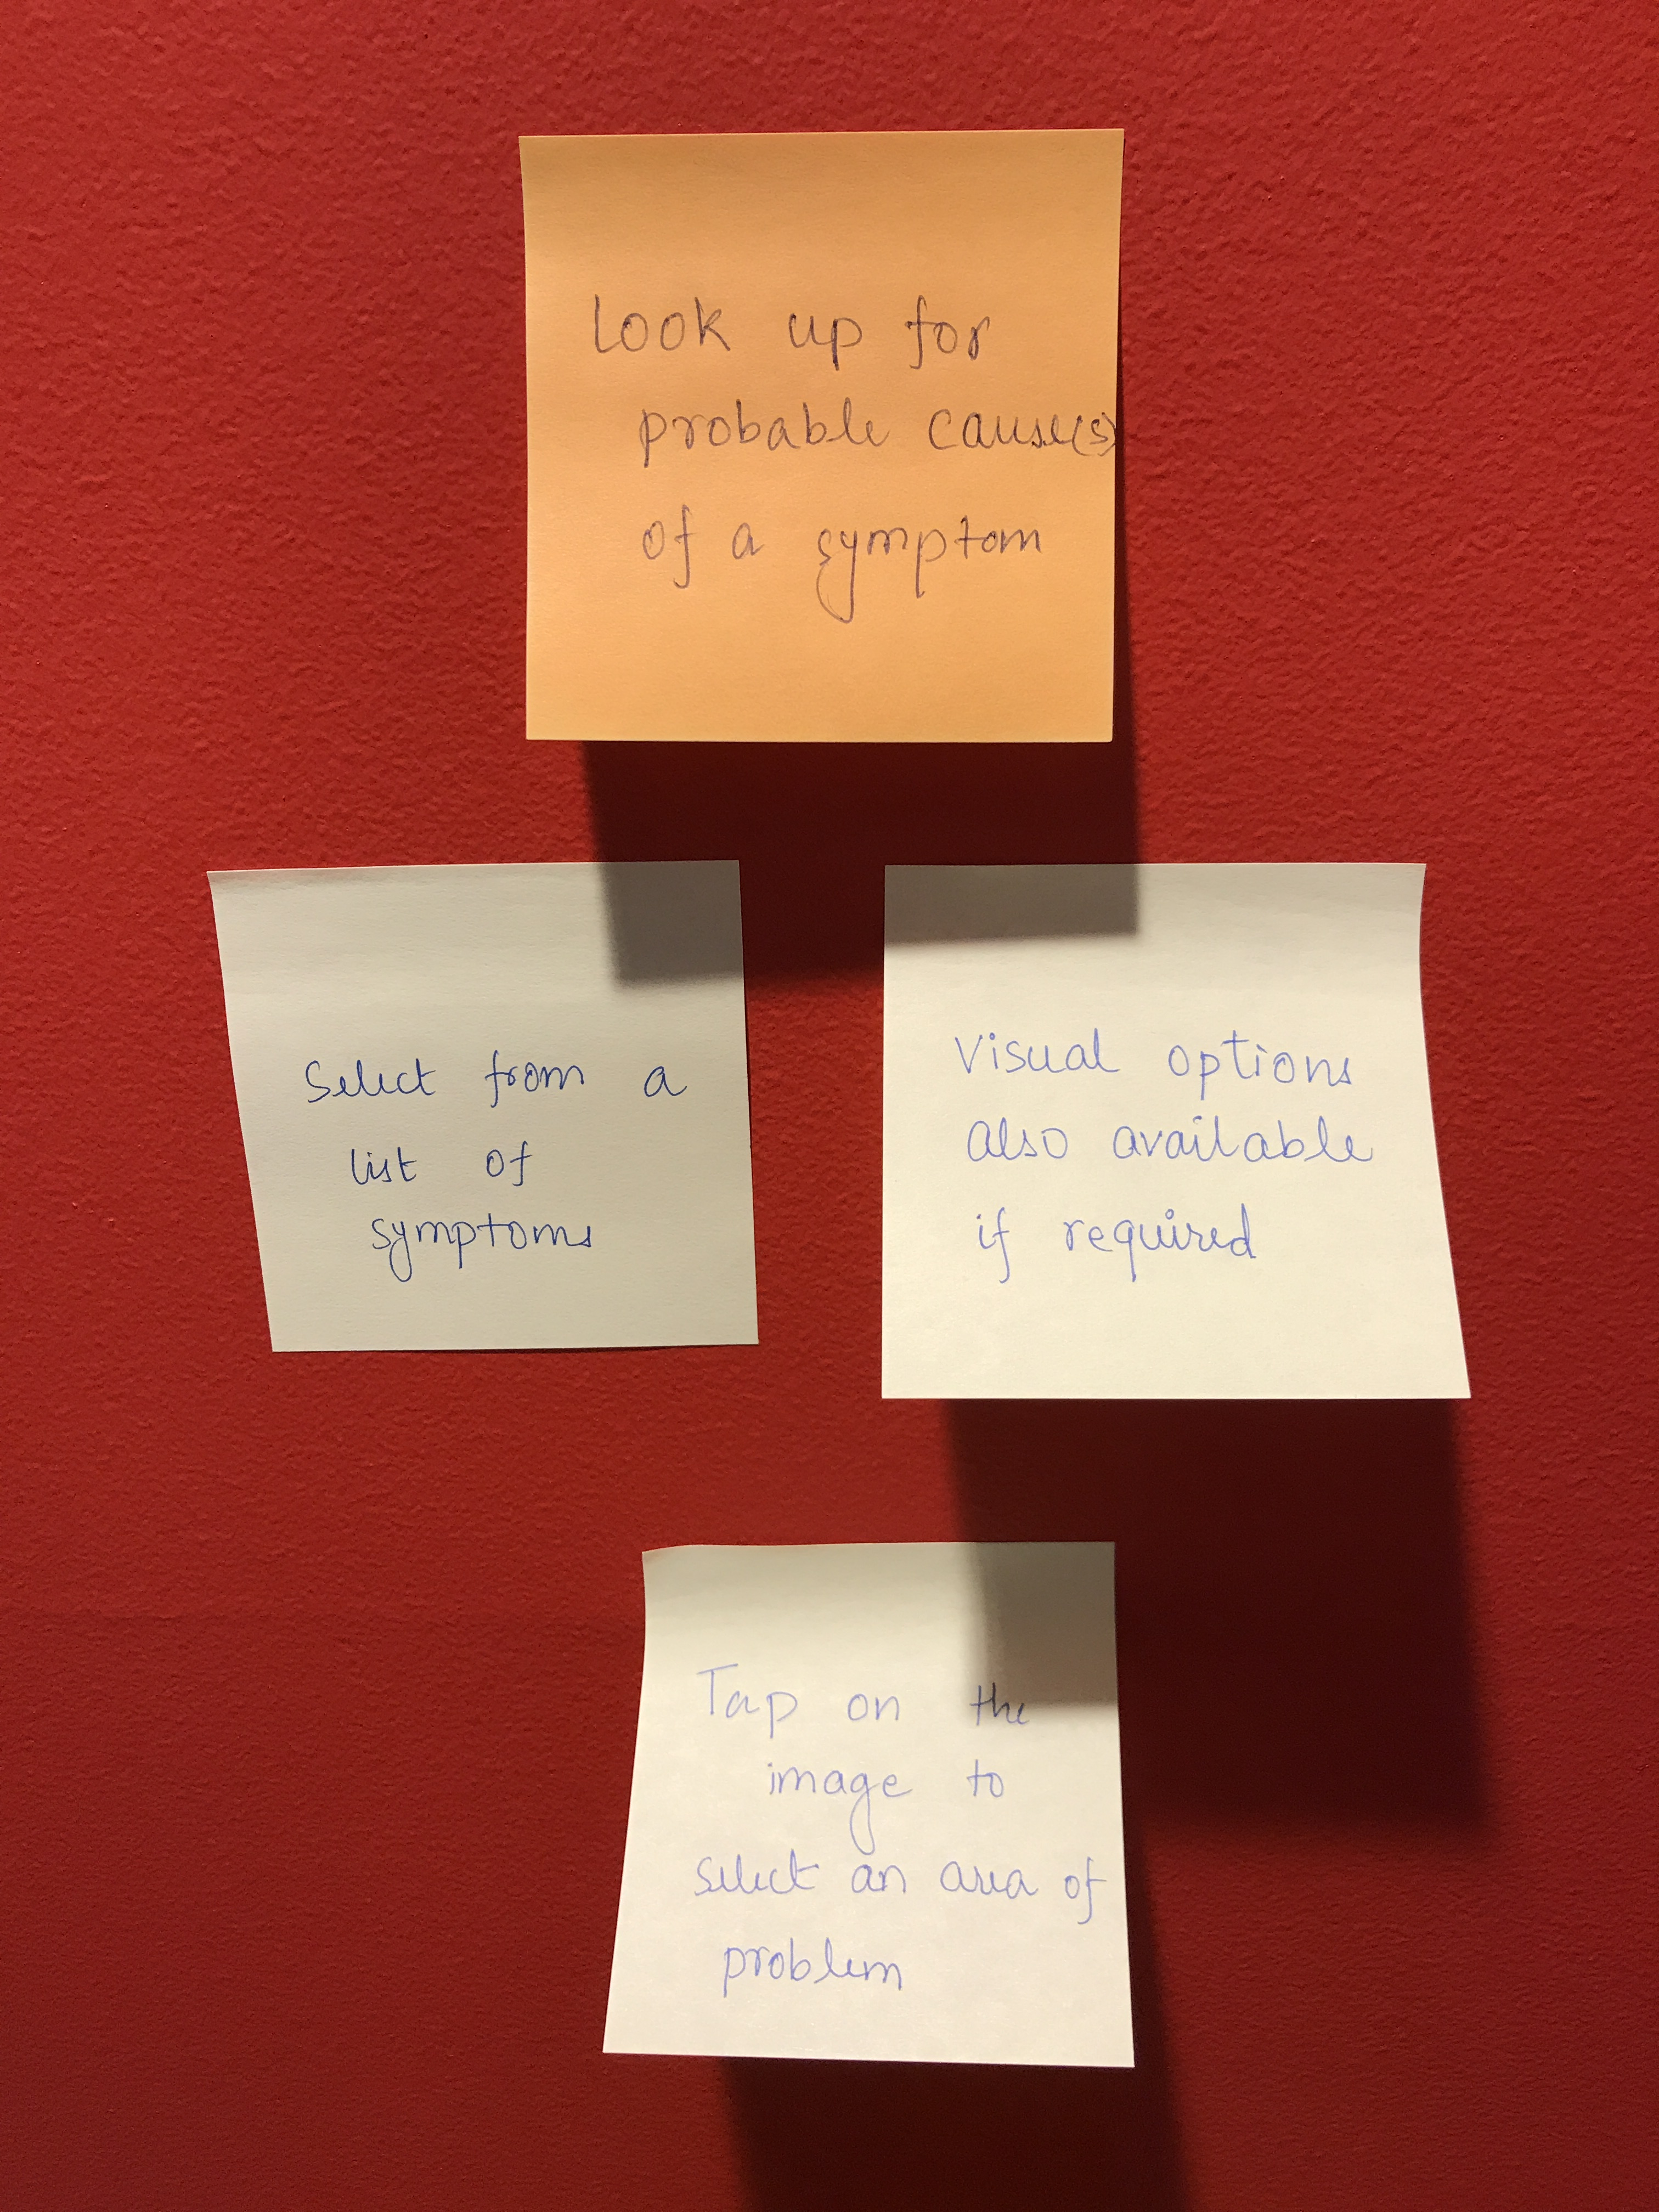 Look up for
probable cause(s)
of a symptom
Select from a
list of
symptoms
Visual options
also available
if required
Tap on the
image to
select an area of
problem